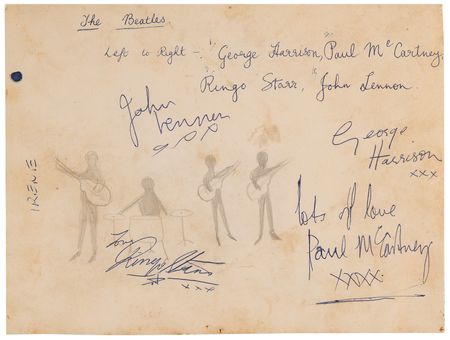 The Beatles
Left to Right - George Harrison, Paul McCartney,
Ringo Starr, John Lennon.
John
Lennon
xxx
George
Harrison
xxx
IRENE
lots of love
Paul McCartney
xxxx
love
Ringo Starr
xxx